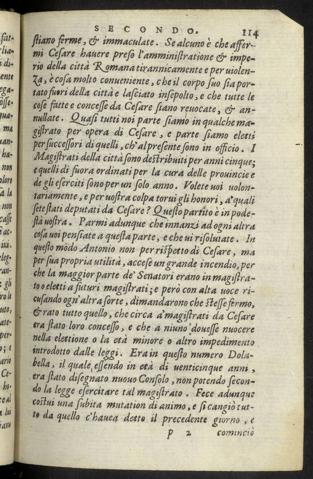 SECONDO. 114
stiano ferme, & immaculate. Se alcuno è che affer-
mi Cesare hauere preso l'amministratione & impe-
rio della città Romana tirannicamente e per uiolen-
za, è cosa molto conueniente, che il corpo suo sia por-
tato fuori della città e lasciato insepolto, e che tutte le
cose fatte e concesse da Cesare siano reuocate, & an-
nullate. Quasi tutti noi parte siamo in qualche ma-
gistrato per opera di Cesare, e parte siamo eletti
per successori di quelli, ch'al presente sono in officio. I
Magistrati della città sono destributi per anni cinque;
e quelli di fuora ordinati per la cura delle prouincie e
de gli eserciti sono per un solo anno. Volete uoi uolon-
tariamente, e per uostra colpa torui gli honori, a' quali
sete stati deputati da Cesare? Questo partito è in pode-
stà uostra. Parmi adunque che innanzi ad ogni altra
cosa uoi pensiate a questa parte, e che ui risoluiate. In
questo modo Antonio non per rispetto di Cesare, ma
per sua propria utilità, accese un grande incendio, per
che la maggior parte de' Senatori erano in magistra-
to o eletti a futuri magistrati; e però con alta uoce ri-
cusando ogn'altra sorte, dimandarono che stesse fermo,
& rato tutto quello, che circa a' magistrati da Cesare
era stato loro concesso, e che a niuno douesse nuocere
nella elettione o la età minore o altro impedimento
introdotto dalle leggi. Era in questo numero Dola-
bella, il quale essendo in età di uenticinque anni,
era stato disegnato nuouo Consolo, non potendo secon-
do la legge esercitare tal magistrato. Fece adunque
costui una subita mutation di animo, e si cangiò tut-
to da quello c'haueua detto il precedente giorno, e
P 2 cominciò